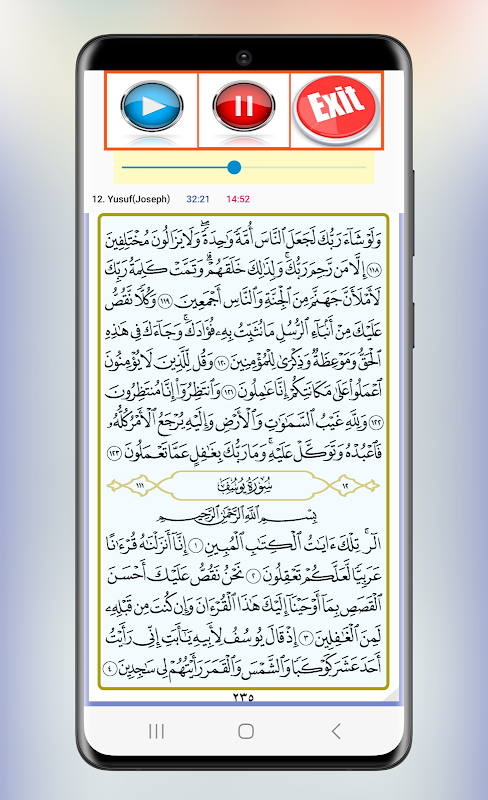 Exit
12. Yusuf(Joseph) 32:21 14:52
وَلَوْ شَآءَ رَبُّكَ لَجَعَلَ ٱلنَّاسَ أُمَّةً وَٰحِدَةً ۖ وَلَا يَزَالُونَ مُخْتَلِفِينَ
١١٨ إِلَّا مَن رَّحِمَ رَبُّكَ ۚ وَلِذَٰلِكَ خَلَقَهُمْ ۗ وَتَمَّتْ كَلِمَةُ رَبِّكَ
لَأَمْلَأَنَّ جَهَنَّمَ مِنَ ٱلْجِنَّةِ وَٱلنَّاسِ أَجْمَعِينَ ١١٩ وَكُلًّا نَّقُصُّ
عَلَيْكَ مِنْ أَنۢبَآءِ ٱلرُّسُلِ مَا نُثَبِّتُ بِهِۦ فُؤَادَكَ ۚ وَجَآءَكَ فِى هَٰذِهِ
ٱلْحَقُّ وَمَوْعِظَةٌ وَذِكْرَىٰ لِلْمُؤْمِنِينَ ١٢٠ وَقُل لِّلَّذِينَ لَا يُؤْمِنُونَ
ٱعْمَلُوا۟ عَلَىٰ مَكَانَتِكُمْ إِنَّا عَٰمِلُونَ ١٢١ وَٱنتَظِرُوٓا۟ إِنَّا مُنتَظِرُونَ
١٢٢ وَلِلَّهِ غَيْبُ ٱلسَّمَٰوَٰتِ وَٱلْأَرْضِ وَإِلَيْهِ يُرْجَعُ ٱلْأَمْرُ كُلُّهُۥ
فَٱعْبُدْهُ وَتَوَكَّلْ عَلَيْهِ ۚ وَمَا رَبُّكَ بِغَٰفِلٍ عَمَّا تَعْمَلُونَ ١٢٣
١٢ سُورَةُ يُوسُفَ ١١١
بِسْمِ ٱللَّهِ ٱلرَّحْمَٰنِ ٱلرَّحِيمِ
الٓر ۚ تِلْكَ ءَايَٰتُ ٱلْكِتَٰبِ ٱلْمُبِينِ ١ إِنَّآ أَنزَلْنَٰهُ قُرْءَٰنًا
عَرَبِيًّا لَّعَلَّكُمْ تَعْقِلُونَ ٢ نَحْنُ نَقُصُّ عَلَيْكَ أَحْسَنَ
ٱلْقَصَصِ بِمَآ أَوْحَيْنَآ إِلَيْكَ هَٰذَا ٱلْقُرْءَانَ وَإِن كُنتَ مِن قَبْلِهِۦ
لَمِنَ ٱلْغَٰفِلِينَ ٣ إِذْ قَالَ يُوسُفُ لِأَبِيهِ يَٰٓأَبَتِ إِنِّى رَأَيْتُ
أَحَدَ عَشَرَ كَوْكَبًا وَٱلشَّمْسَ وَٱلْقَمَرَ رَأَيْتُهُمْ لِى سَٰجِدِينَ ٤
٢٣٥